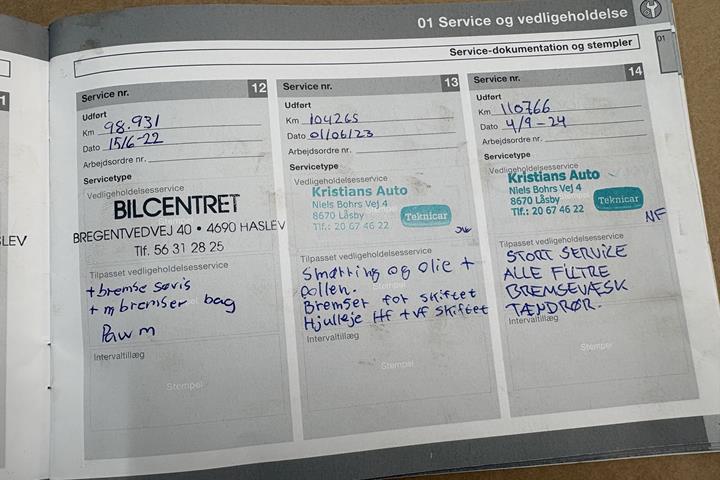 01 Service og vedligeholdelse
01
Service-dokumentation og stempler
1
SLEV
Service nr. 12
Udført
Km 98.931
Dato 15/6-22
Arbejdsordre nr.
Servicetype
Vedligeholdelsesservice
BILCENTRET
BREGENTVEDVEJ 40 • 4690 HASLEV
Tlf. 56 31 28 25
Tilpasset vedligeholdelsesservice
+ bremse
+ bremser bag
Intervaltillæg
Stempel
Service nr. 13
Udført
Km 104265
Dato 01/06/23
Arbejdsordre nr.
Servicetype
Vedligeholdelsesservice
Kristians Auto
Niels Bohrs Vej 4
8670 Låsby
Tlf.: 20 67 46 22
Teknicar
Tilpasset vedligeholdelsesservice
Smørring og olie +
pollen.
Bremser for skiftet
Hjulleje Hf + vf skiftet
Intervaltillæg
Stempel
Service nr. 14
Udført
Km 110766
Dato 4/9-24
Arbejdsordre nr.
Servicetype
Vedligeholdelsesservice
Kristians Auto
Niels Bohrs Vej 4
8670 Låsby
Tlf.: 20 67 46 22
Teknicar
NF
Tilpasset vedligeholdelsesservice
STORT SERVICE
ALLE FILTRE
BREMSEVÆSK
TÆNDRØR.
Intervaltillæg
Stempel